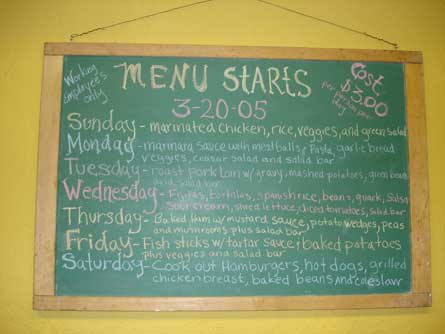 Working
employees
only
MENU STARTS
3-20-05
Cost
$3.00
per person per
day
Sunday - marinated chicken, rice, veggies, and green salad
Monday - marinara sauce with meatballs, pasta, garlic bread
veggies, caesar salad and salad bar
Tuesday - roast pork loin w/ gravy, mashed potatoes, green beans
and salad bar
Wednesday - Fajitas, tortillas, spanish rice, beans, guack, Salsa
Sour cream, shred lettuce, diced tomatoes, salad bar
Thursday - Baked Ham w/ mustard sauce, potato wedges, peas
and mushrooms plus salad bar
Friday - Fish sticks w/ tartar sauce, baked potatoes
plus veggies and salad bar
Saturday - Cook out Hamburgers, hot dogs, grilled
chicken breast, baked beans and coleslaw